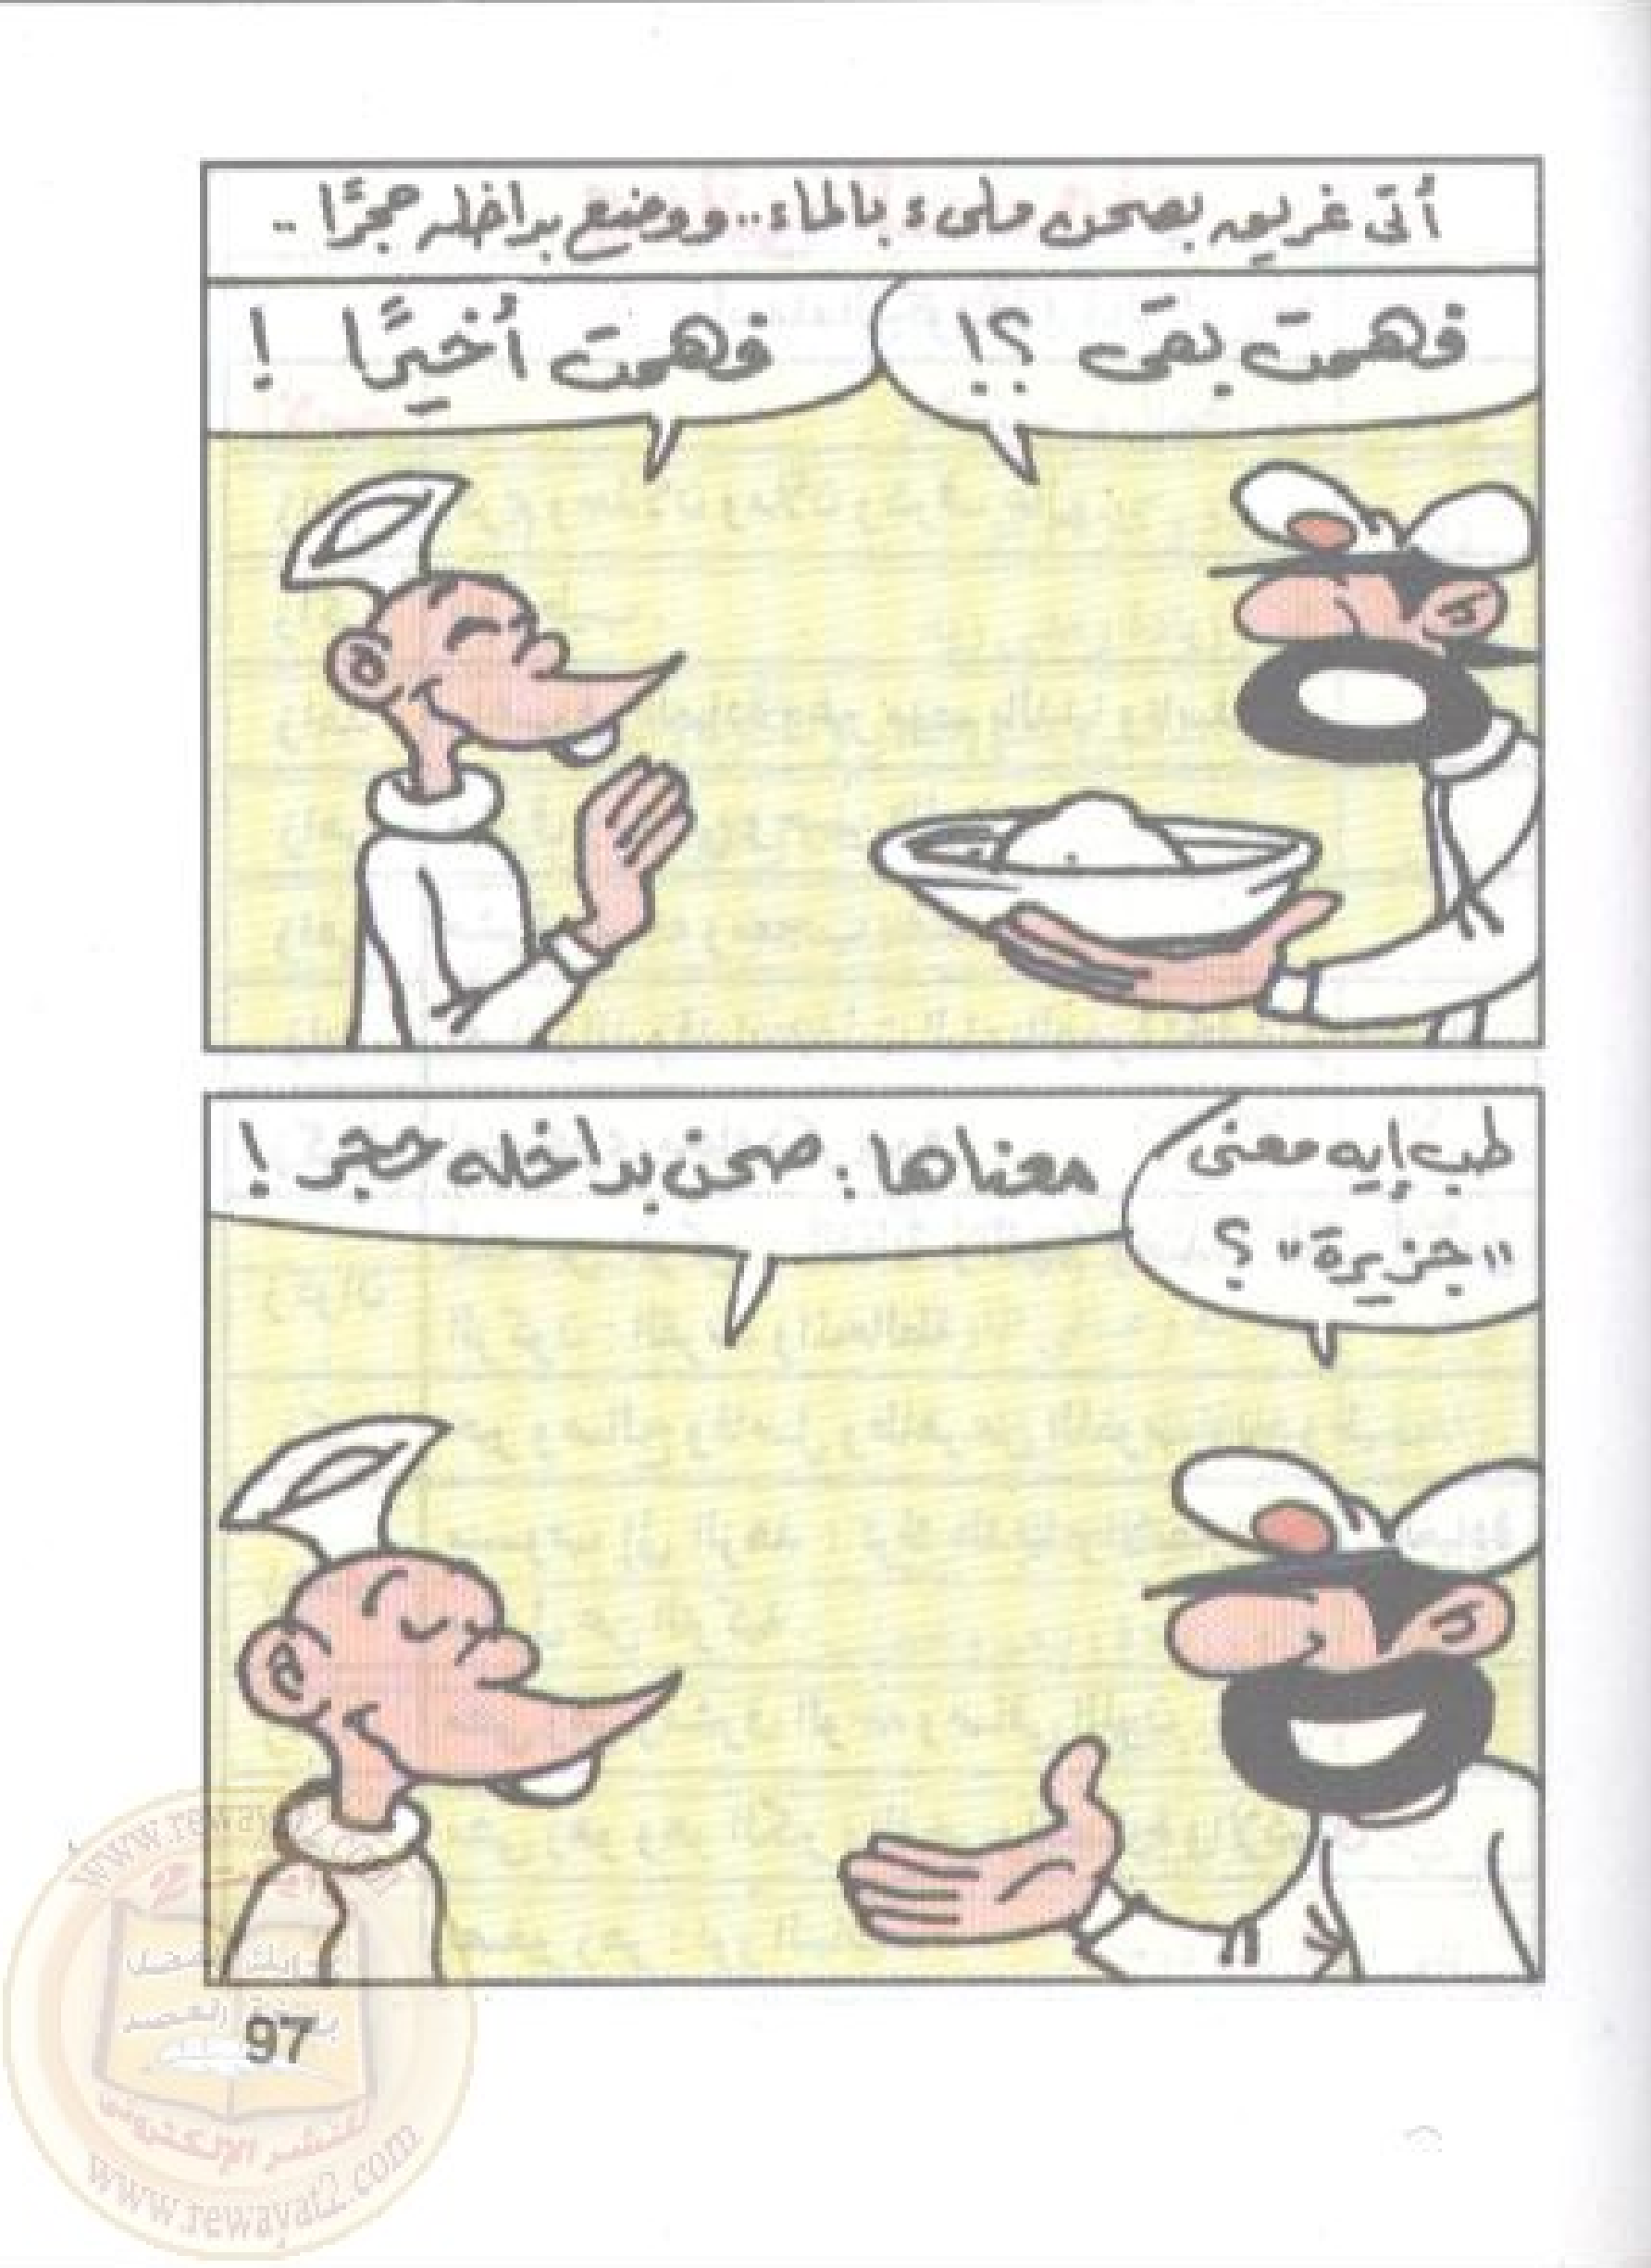 أتى غريق بصحن ملىء بالماء.. ووضع بداخله حجرًا ..
فهمت بقى ؟!
فهمت أخيرًا !
طب إيه معنى
"جزيرة" ؟
معناها : صحن بداخله حجر !
97
www.rewayat2.com